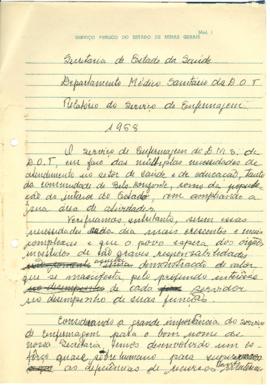 SERVIÇO PÚBLICO DO ESTADO DE MINAS GERAIS
Secretaria de Estado da Saúde
Departamento Médico Sanitário da D.O.T
Relatório do Serviço de Enfermagem
1968
O Serviço de Enfermagem do D.M.S. da
D.O.T, em face das múltiplas necessidades de
atendimento no setor de saúde e de educação, tanto
da comunidade de Belo Horizonte, como da popula-
ção do interior do Estado, vem ampliando a
sua área de atividades.
Verificamos entretanto, serem essas
necessidades dia mais crescentes e mais
complexas e que o povo espera dos órgãos
de tão graves responsabilidades
demonstração de valor
que se manifesta pelo profundo interesse
de cada servidor
no desempenho de suas funções.
Considerando a grande importância do serviço
de Enfermagem para o bom nome da
nossa Secretaria, temos desenvolvido um es-
forço quase sobre humano para
as deficiências de recursos